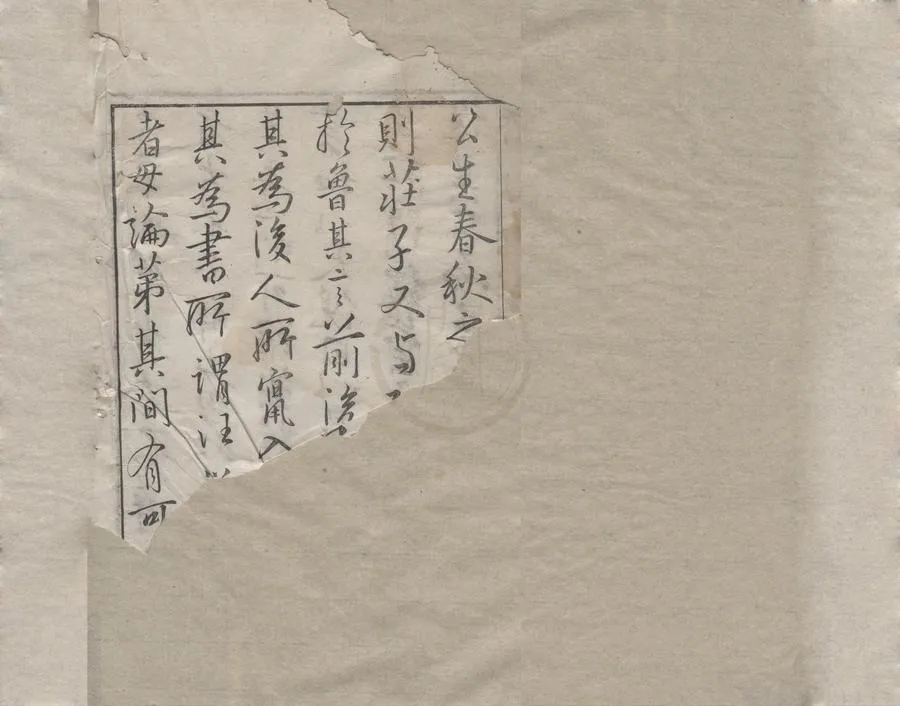 公生春秋之
則莊子又与
於魯其言前後
其為後人所竄入
其為書所謂汪
者毋論苐其間有可